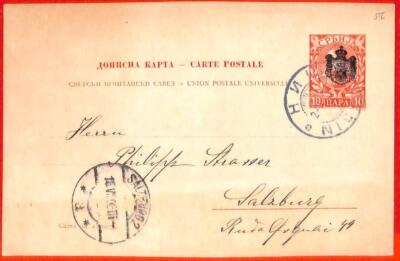 СРБИЈА
ДОПИСНА КАРТА – CARTE POSTALE
СВЕТСКИ ПОШТАНСКИ САВЕЗ – UNION POSTALE UNIVERSELLE
10 ПАРА 10
НИШ
NIŠ
Herrn
Philipp Strasser
SALZBURG 2
Salzburg